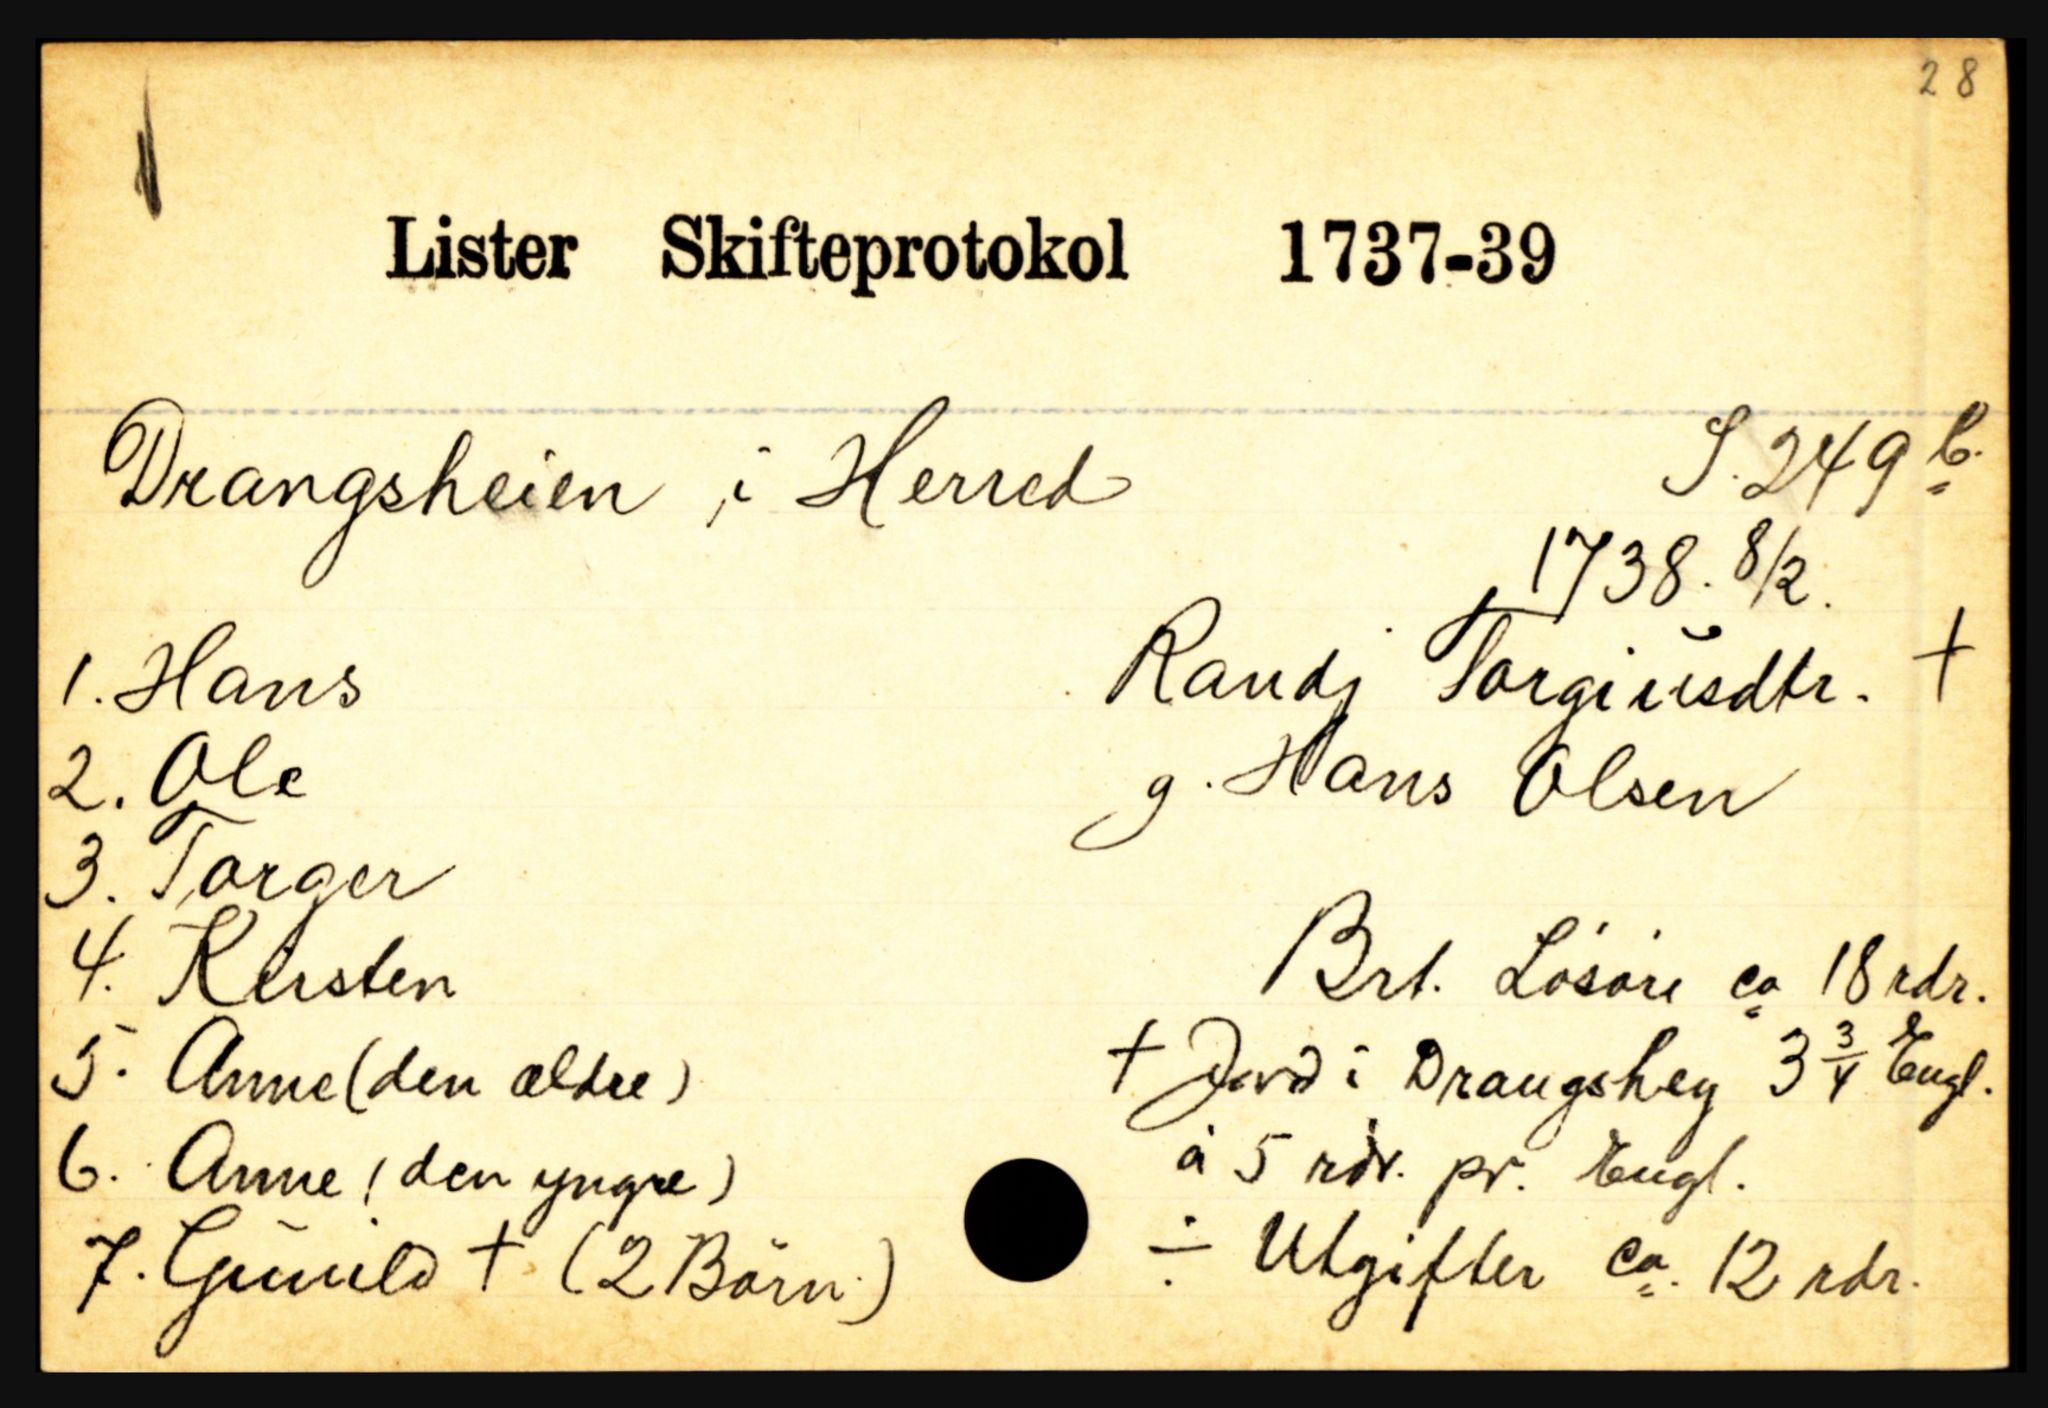 28
Lister Skifteprotokol 1737-39
Drangsheien i Herred
S. 249 b.
1738. 8/2.
Randj Torgiusdtr. †
g. Hans Olsen
1. Hans
2. Ole
3. Torger
4. Kirsten
5. Anne (den ældre)
6. Anne (den yngre)
7. Gunild † (2 Börn.)
Brt. Lösöre ca 18 rdr.
+ Jord i Drangshey 3 3/4 Engl.
à 5 rdr. pr. Engl.
÷ Utgifter ca. 12 rdr.